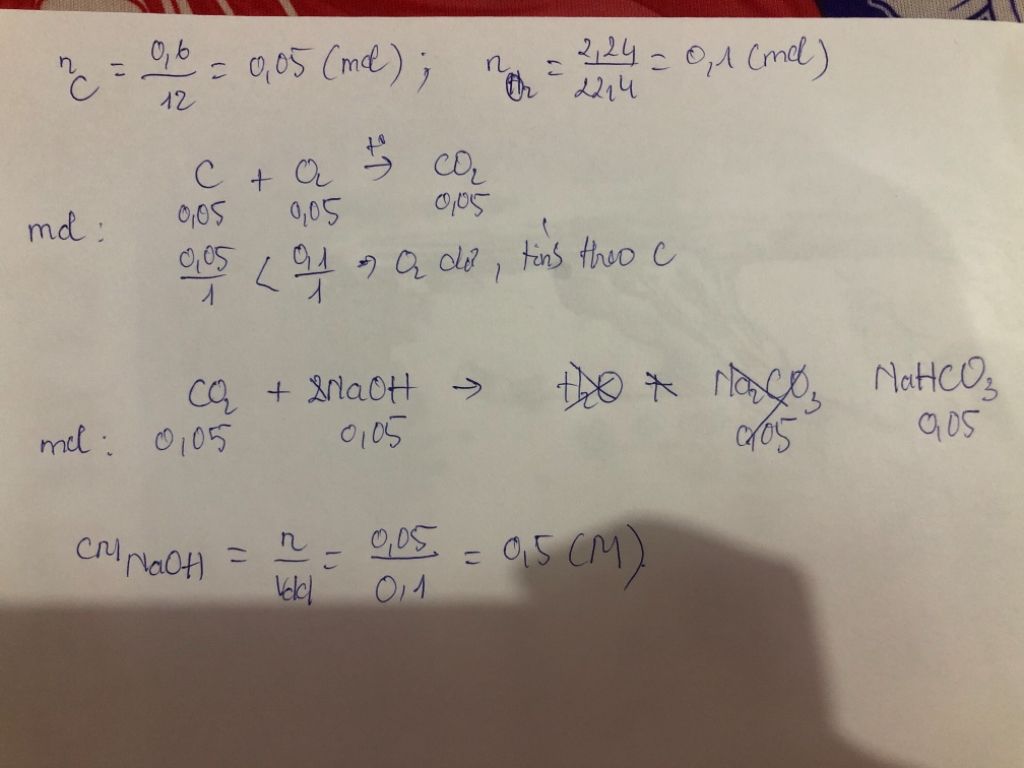 n_C = 0,6/12 = 0,05 (mol) ; n_O2 = 2,24/22,4 = 0,1 (mol)
C + O2 t°→ CO2
mol: 0,05 0,05 0,05
0,05/1 < 0,1/1 => O2 dư, tính theo C
CO2 + NaOH → H2O + Na2CO3 NaHCO3
mol: 0,05 0,05 0,05 0,05
CM NaOH = n/Vdd = 0,05/0,1 = 0,5 (M).